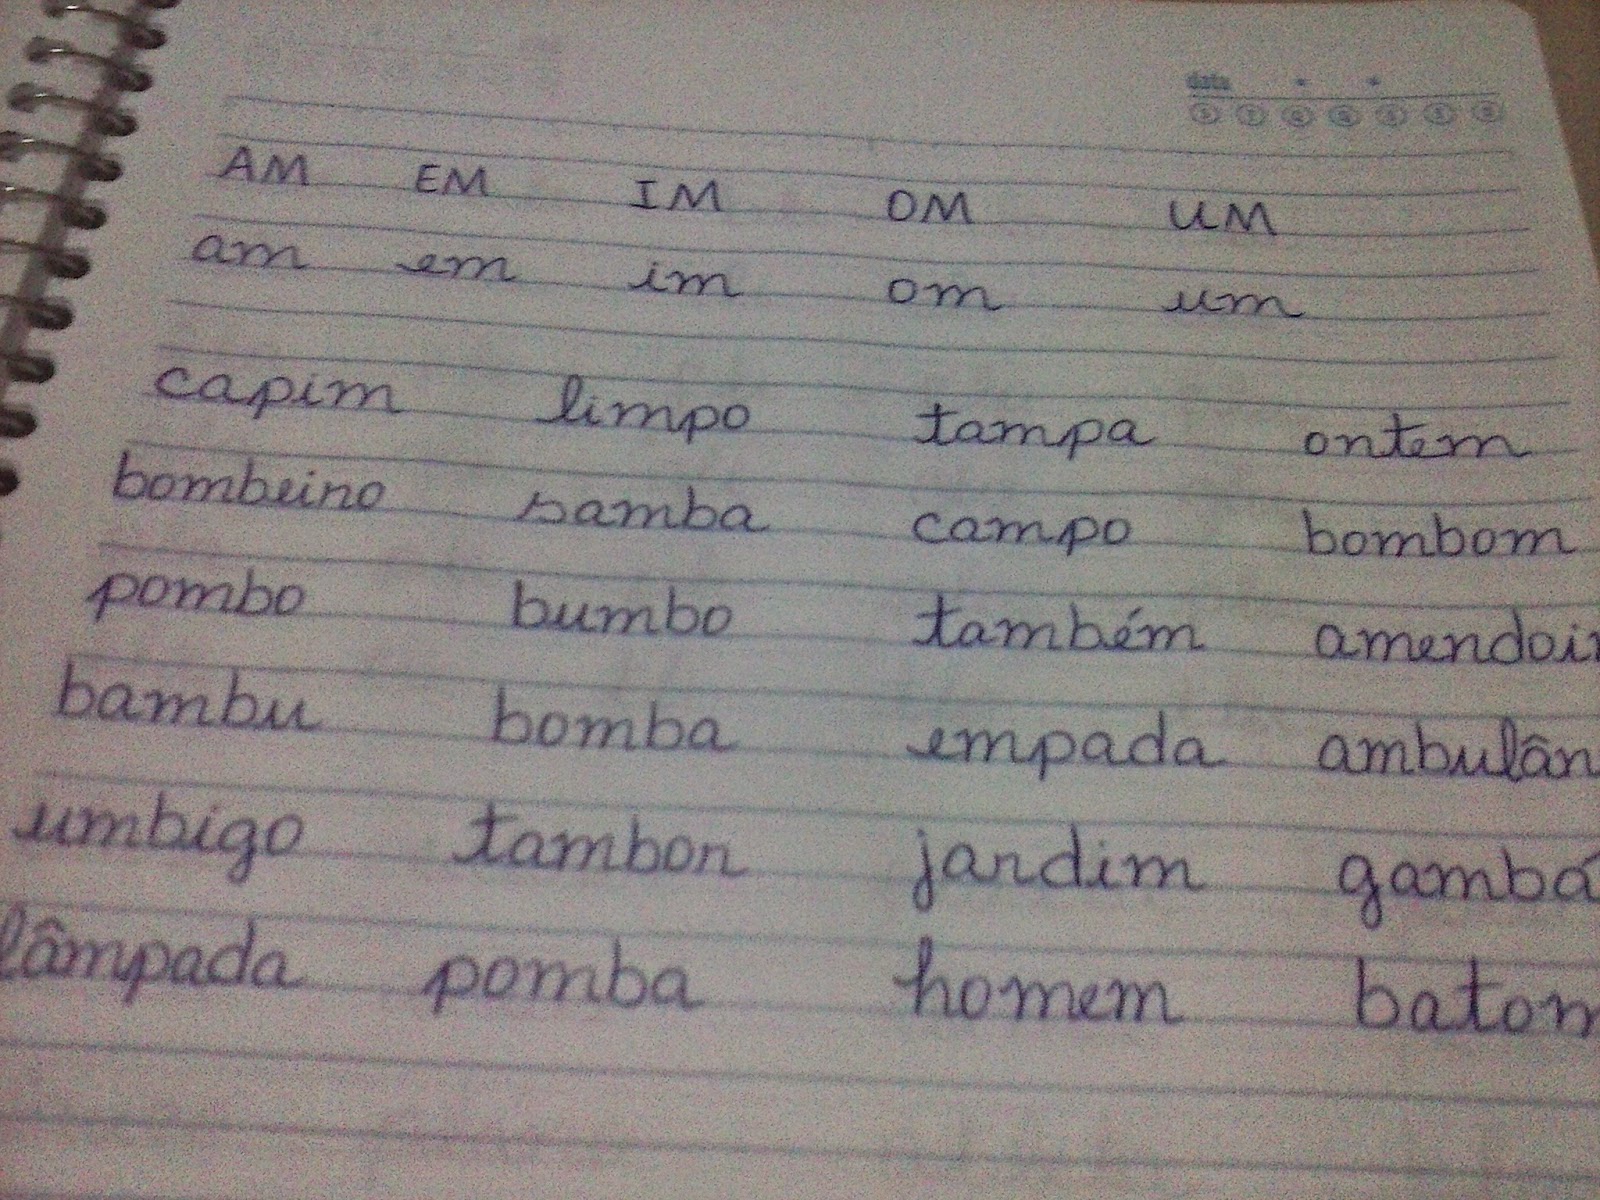 data
AM EM IM OM UM
am em im om um
capim limpo tampa ontem
bombeiro samba campo bombom
pombo bumbo também amendoi
bambu bomba empada ambulân
umbigo tambor jardim gambá
lâmpada pomba homem batom